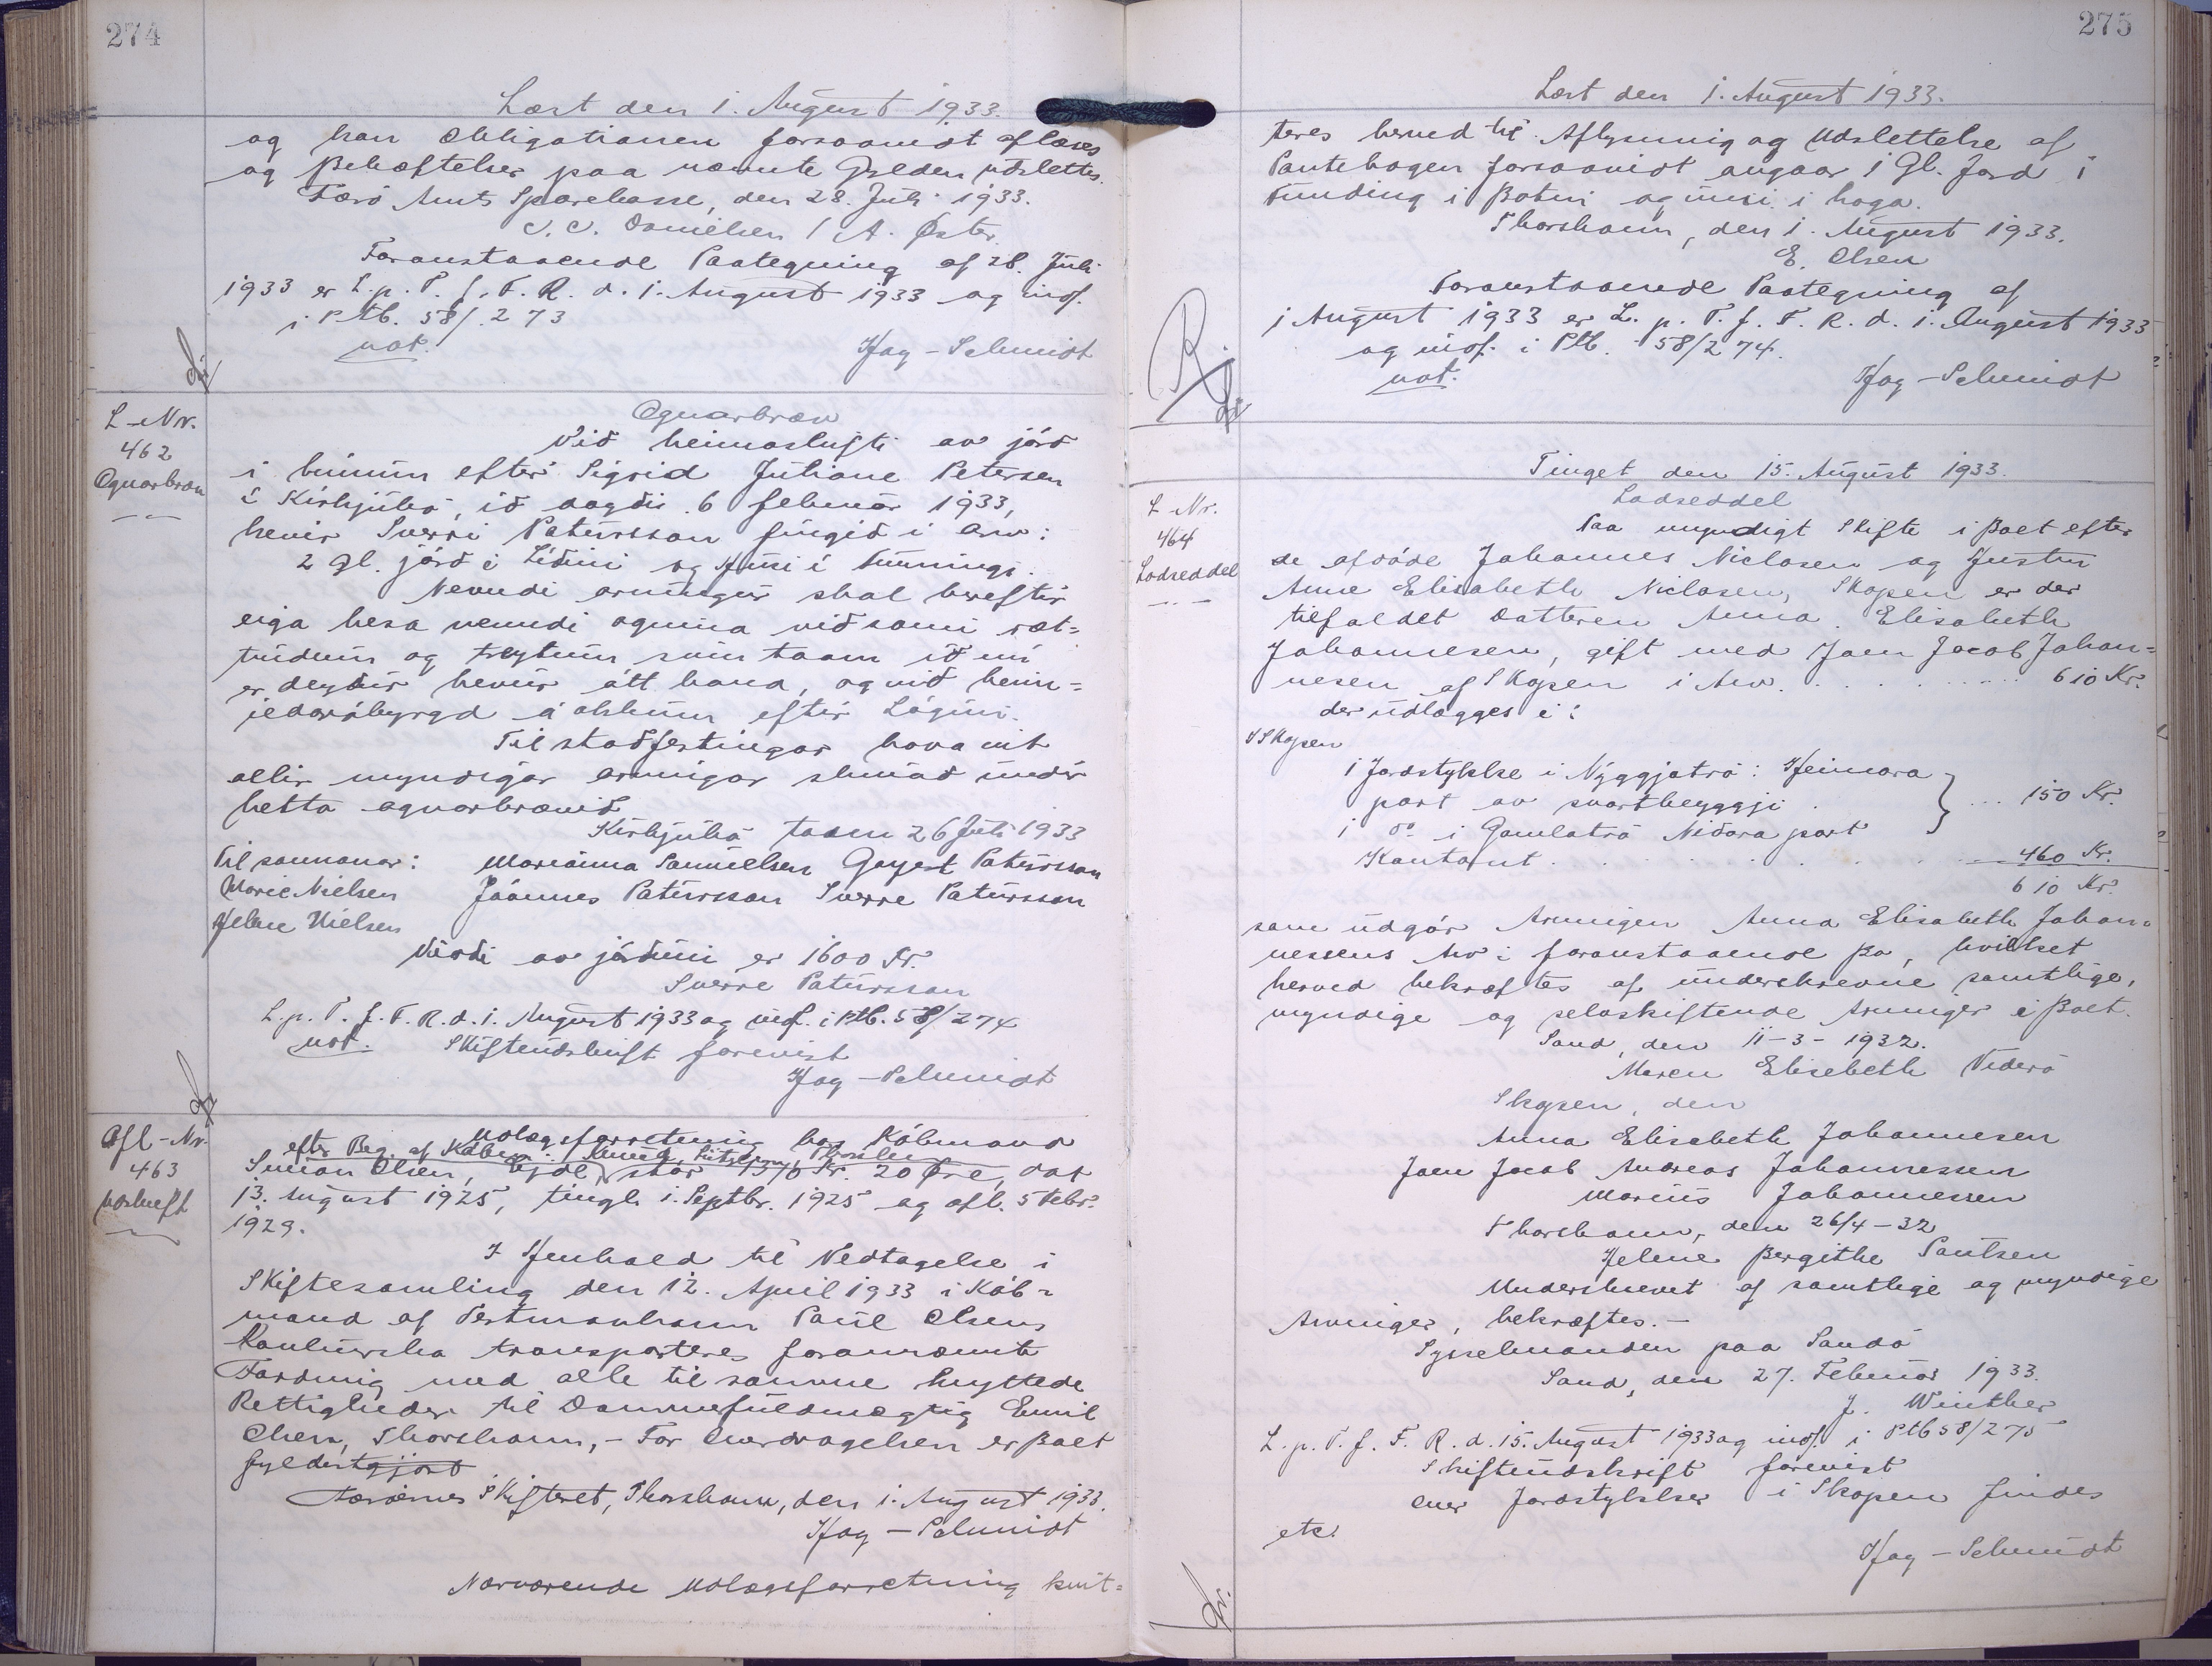 274
Læst den 1. August 1933.
og kan Obligationen forsaavidt aflæses
og Behæftelser paa nævnte Gælden udslettes.
Færø Amts Sparekasse, den 28. Juli 1933.
C. C. Danielsen / A. Øster
Foranstaaende Paategning af 28. Juli
1933 er L. p. T. f. F. R. d. 1. August 1933 og indf.
i Ptb. 58/273
not.
Hag-Schmidt
L-Nr.
462
Ognarbræv
Ognarbræv
Við heimaskifti av jørð
i búnum eftir Sigrid Juliane Petersen
í Kirkjubø, ið doyði 6 februar 1933,
hevir Sverri Patursson fingið i arv:
2 gl. jørð i Líðini og Húsi í Funningi.
Nevndi arvingur skal hereftir
eiga hesa nevndi ognina við somu ræt=
tindum og treytum sum taann ið nú
er deyður hevur átt hana, og við heim=
ildarábyrgd á okkum eftir Lógini.
Til staðfestingar hava vit
allir myndigar arvingar skrivað undir
hetta ognarbrævið
Kirkjubø taann 26 Juli 1933
Til sannanar: Marianna Samuelsen Gazet Patursson
Marie Nielsen Jóannes Patursson Sverre Patursson
Helene Nielsen
Virði av jørðini er 1600 Kr.
Sverre Patursson
L. p. T. f. F. R. d. 1. August 1933 og indf. i Ptb. 58/274
not. Skifteudskrift forevist
Hag-Schmidt
Afl-Nr.
463
Udskrift
Udlægsforretning hos Købmand
efter Beg. af Købm.
Simon Olsen, Ejde, stor 1376 Kr. 20 Øre, dat
13. August 1925, tingl. 1. Septbr. 1925 og afl. 5 Febr.
1929.
I Henhold til Vedtagelse i
Skiftesamling den 12. April 1933 i Køb=
mand af Vestmanhavn Poul Olsens
Konkursbo transporteres forannævnte
Fordring med alle til samme knyttede
Rettigheder til Dommerfuldmægtig Emil
Olsen, Thorshavn, - For Overdragelsen er Boet
fyldestgjort
Færøernes Skifteret, Thorshavn, den 1. August 1933.
Hag-Schmidt
Nærværende Udlægsforretning kvit=
275
Læst den 1. August 1933.
teres herved til Aflysning og Udslettelse af
Pantebogen forsaavidt angaar 1 Gl. Jord i
Funding i Botni og inni i haga.
Thorshavn, den 1. August 1933.
E. Olsen
Foranstaaende Paategning af
1 August 1933 er L. p. T. f. F. R. d. 1. August 1933
og indf. i Ptb. 58/274.
not.
Hag-Schmidt
Tinget den 15. August 1933.
L-Nr.
464
Lodseddel
Lodseddel
Paa myndigt Skifte i Boet efter
de afdøde Johannes Niclasen og Hustru
Anne Elisabeth Niclasen, Skopen er der
tilfaldet Datteren Anna Elisabeth
Johannesen, gift med Joen Jacob Johan=
nesen af Skopen i Arv. . . . . . . . 610 Kr.
der udlægges i:
I Skopen
1 Jordstykke i Nýggjatrø: Heimara
part av svartheyggji } ... 150 Kr.
1 do i Gamlatrø Niðara part
Kontant . . . . . . . . 460 Kr.
610 Kr.
som udgør Arvingen Anna Elisabeth Johan=
nessens Arv i foranstaaende Bo, hvilket
herved bekræftes af underskrevne samtlige,
myndige og selvskiftende Arvinger i Boet.
Sand, den 11-3-1932.
Maren Elisebeth Viderø
Skopen, den
Anna Elisabeth Johannesen
Joen Jacob Andreas Johannessen
Marius Johannessen
Thorshavn, den 26/4-32
Helene Bergithe Poulsen
Underskrevet af samtlige og myndige
Arvinger, bekræftes.-
Sysselmanden paa Sandø
Sand, den 27. Februar 1933.
J. Winther
L. p. T. f. F. R. d. 15. August 1933 og indf. i Ptb 58/275
Skifteudskrift forevist
Over Jordstykker i Skopen findes
etc.
Hag-Schmidt